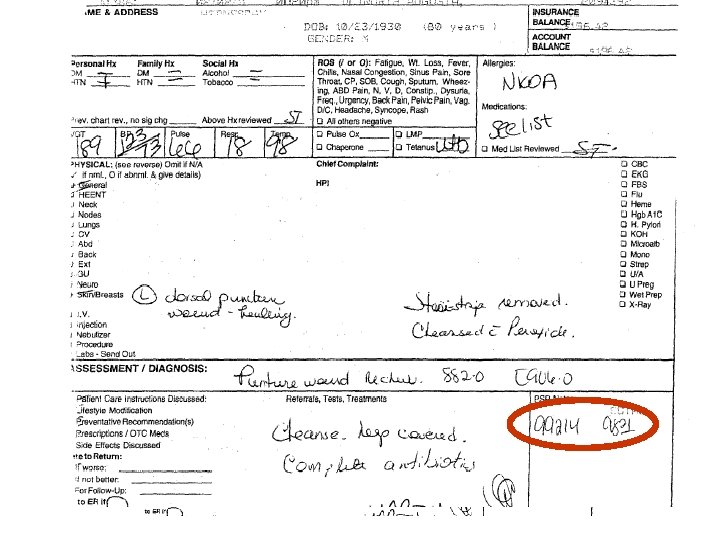 AME & ADDRESS
DOB: 10/23/1930 (80 years)
GENDER:
INSURANCE
BALANCE
ACCOUNT
BALANCE
Personal Hx Family Hx Social Hx
DM DM Alcohol
HTN HTN Tobacco
Prev. chart rev., no sig chg Above Hx reviewed ST
ROS (/ or O): Fatigue, Wt. Loss, Fever,
Chills, Nasal Congestion, Sinus Pain, Sore
Throat, CP, SOB, Cough, Sputum, Wheez-
ing, ABD Pain, N, V, D, Constip., Dysuria,
Freq., Urgency, Back Pain, Pelvic Pain, Vag.
D/C, Headache, Syncope, Rash
All others negative
Allergies:
NKDA
Medications:
See list
WGT BP Pulse Resp Temp
189 123/73 66 18 98
Pulse Ox LMP
Chaperone Tetanus UTD
Med List Reviewed ST
PHYSICAL: (see reverse) Omit if N/A
if nml., O if abnml. & give details)
General
HEENT
Neck
Nodes
Lungs
CV
Abd
Back
Ext
GU
Neuro
Skin/Breasts
I.V.
Injection
Nebulizer
Procedure
Labs - Send Out
Chief Complaint:
HPI
CBC
EKG
FBS
Flu
Heme
Hgb A1C
H. Pylori
KOH
Microalb
Mono
Strep
U/A
U Preg
Wet Prep
X-Ray
(L) dorsal puncture
wound - healing.
Steristrip removed.
Cleansed c̄ Peroxide.
ASSESSMENT / DIAGNOSIS:
Puncture wound Recheck. 882.0 E906.0
Patient Care instructions Discussed:
Lifestyle Modification
Preventative Recommendation(s)
Prescriptions / OTC Meds
Side Effects Discussed
Return:
If worse:
If not better:
For Follow-Up:
to ER if
to ER if
Referrals, Tests, Treatments
Cleanse. keep covered.
Complete antibiotics
99214 9831